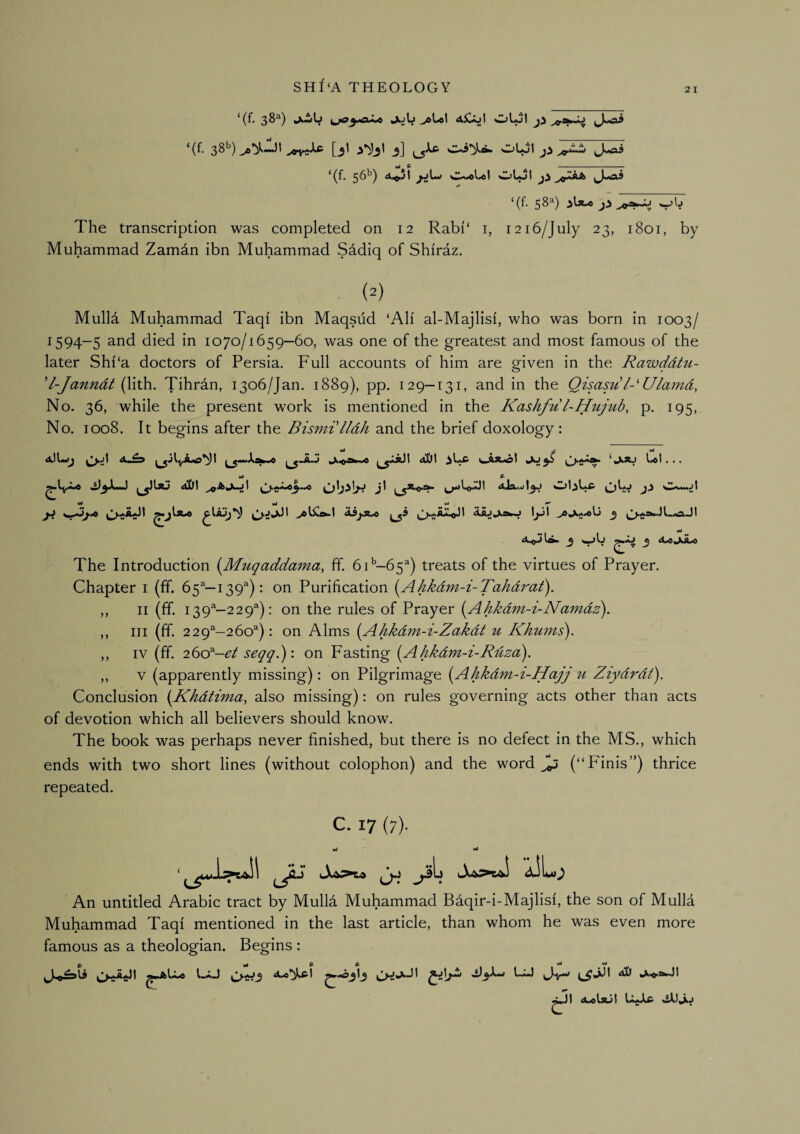 SHÍ‘A THEOLOGY
21
‘(f. 38ᵃ) فصل پنجم در اثبات آنکه امام باید منصوص باشد
‘(f. 38ᵇ) فصل ششم در اثبات خلافت علی [و اولاد او] علیهم السّلام
‘(f. 56ᵇ) فصل هفتم در اثبات امامت سایر ائمّه
‘(f. 58ᵃ) باب پنجم در معاد
The transcription was completed on 12 Rabí‘ 1, 1216/July 23, 1801, by
Muḥammad Zamán ibn Muḥammad Ṣádiq of Shíráz.
(2)
Mullá Muḥammad Taqí ibn Maqṣúd ‘Alí al-Majlisí, who was born in 1003/
1594–5 and died in 1070/1659–60, was one of the greatest and most famous of the
later Shí‘a doctors of Persia. Full accounts of him are given in the Rawḍátu-
’l-Jannát (lith. Ṭihrán, 1306/Jan. 1889), pp. 129–131, and in the Qiṣaṣu’l-‘Ulamá,
No. 36, while the present work is mentioned in the Kashfu’l-Ḥujub, p. 195,
No. 1008. It begins after the Bismi’lláh and the brief doxology:
... امّا بعد، چنین گوید اضعف عباد الله الغنی محمّد تقی مجلسی الاصفهانی که این رساله
ایست در بیان عبادات بواسطۀ النّاس جمعی از برادران مؤمنین اید‌هم الله تعالی لسلوک مناهج
الصّالحین و نامیدم اورا بحدیقة المتّقین فی معرفة احکام الدّین لارتقاء معارج الیقین مرتّب بر
مقدّمه و پنج باب و خاتمه
The Introduction (Muqaddama, ff. 61ᵇ–65ᵃ) treats of the virtues of Prayer.
Chapter I (ff. 65ᵃ–139ᵃ): on Purification (Aḥkám-i-Ṭahárat).
,, II (ff. 139ᵃ–229ᵃ): on the rules of Prayer (Aḥkám-i-Namáz).
,, III (ff. 229ᵃ–260ᵃ): on Alms (Aḥkám-i-Zakát u Khums).
,, IV (ff. 260ᵃ–et seqq.): on Fasting (Aḥkám-i-Rúza).
,, V (apparently missing): on Pilgrimage (Aḥkám-i-Ḥajj u Ziyárát).
Conclusion (Khátima, also missing): on rules governing acts other than acts
of devotion which all believers should know.
The book was perhaps never finished, but there is no defect in the MS., which
ends with two short lines (without colophon) and the word تمّ (“Finis”) thrice
repeated.
C. 17 (7).
رسالة لمحمّد باقر بن محمّد تقی المجلسی،
An untitled Arabic tract by Mullá Muḥammad Báqir-i-Majlisí, the son of Mullá
Muḥammad Taqí mentioned in the last article, than whom he was even more
famous as a theologian. Begins:
الحمد لله الذی سهل لنا سلوک شرایع الدین و اوضح اعلامه و بیّن لنا مناهج الیقین فاکمل
بذلک علینا انعامه الخ